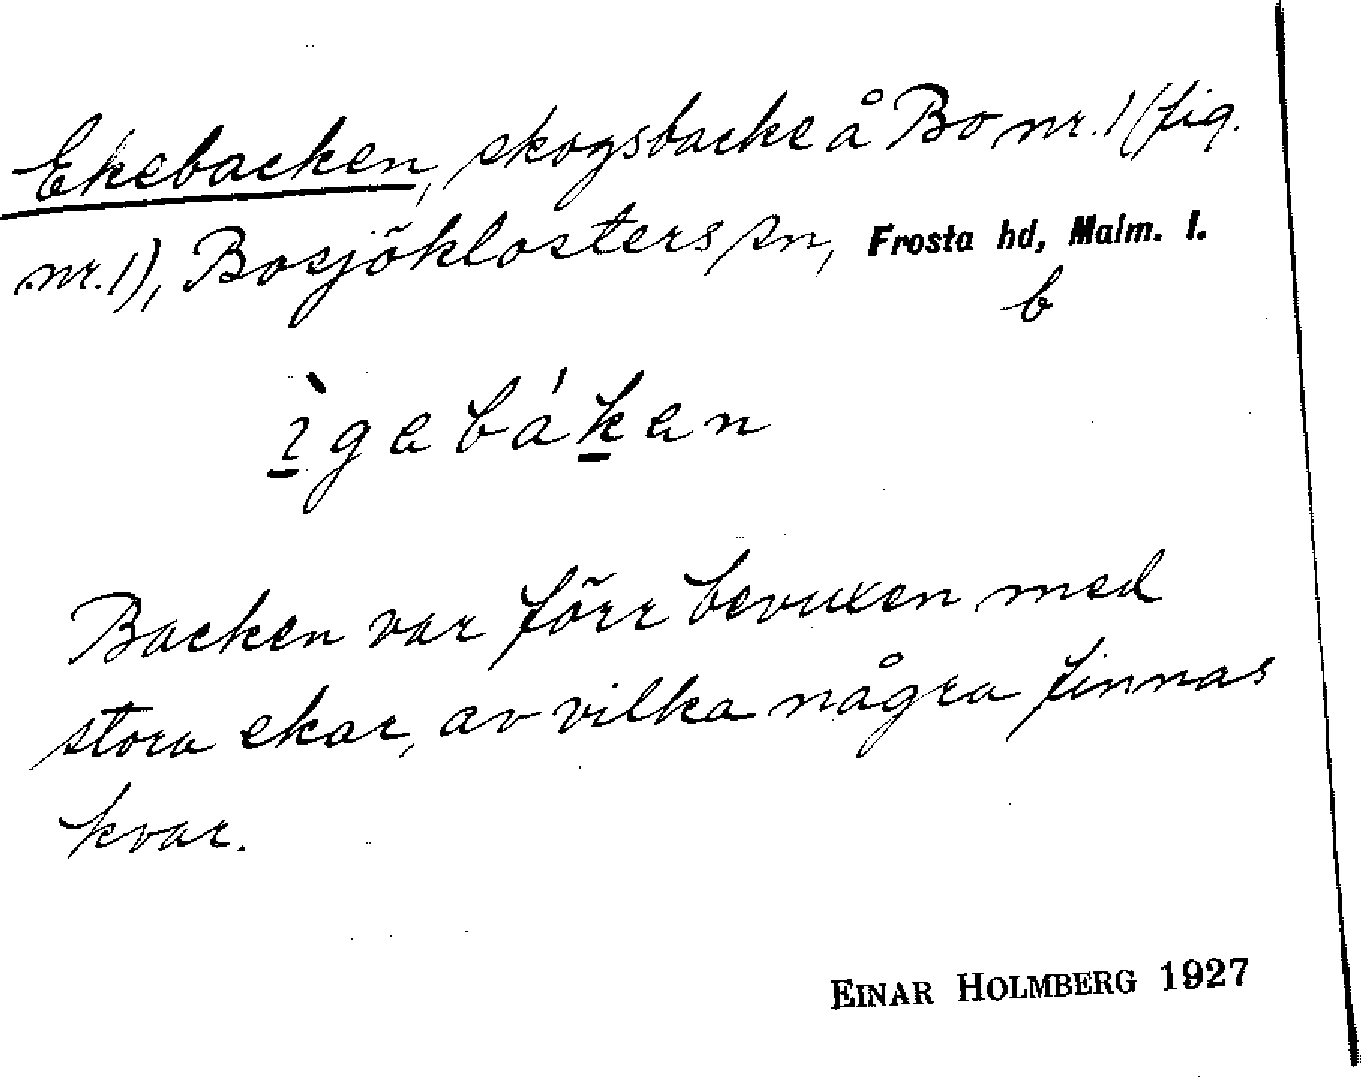 Ekebacken, skogsbacke å Bo nr. 1 (fig.
nr. 1), Bosjöklosters sn, Frosta hd, Malm. l.
b
ìgebáken
Backen var förr bevuxen med
stora ekar, av vilka några finnas
kvar.
EINAR HOLMBERG 1927